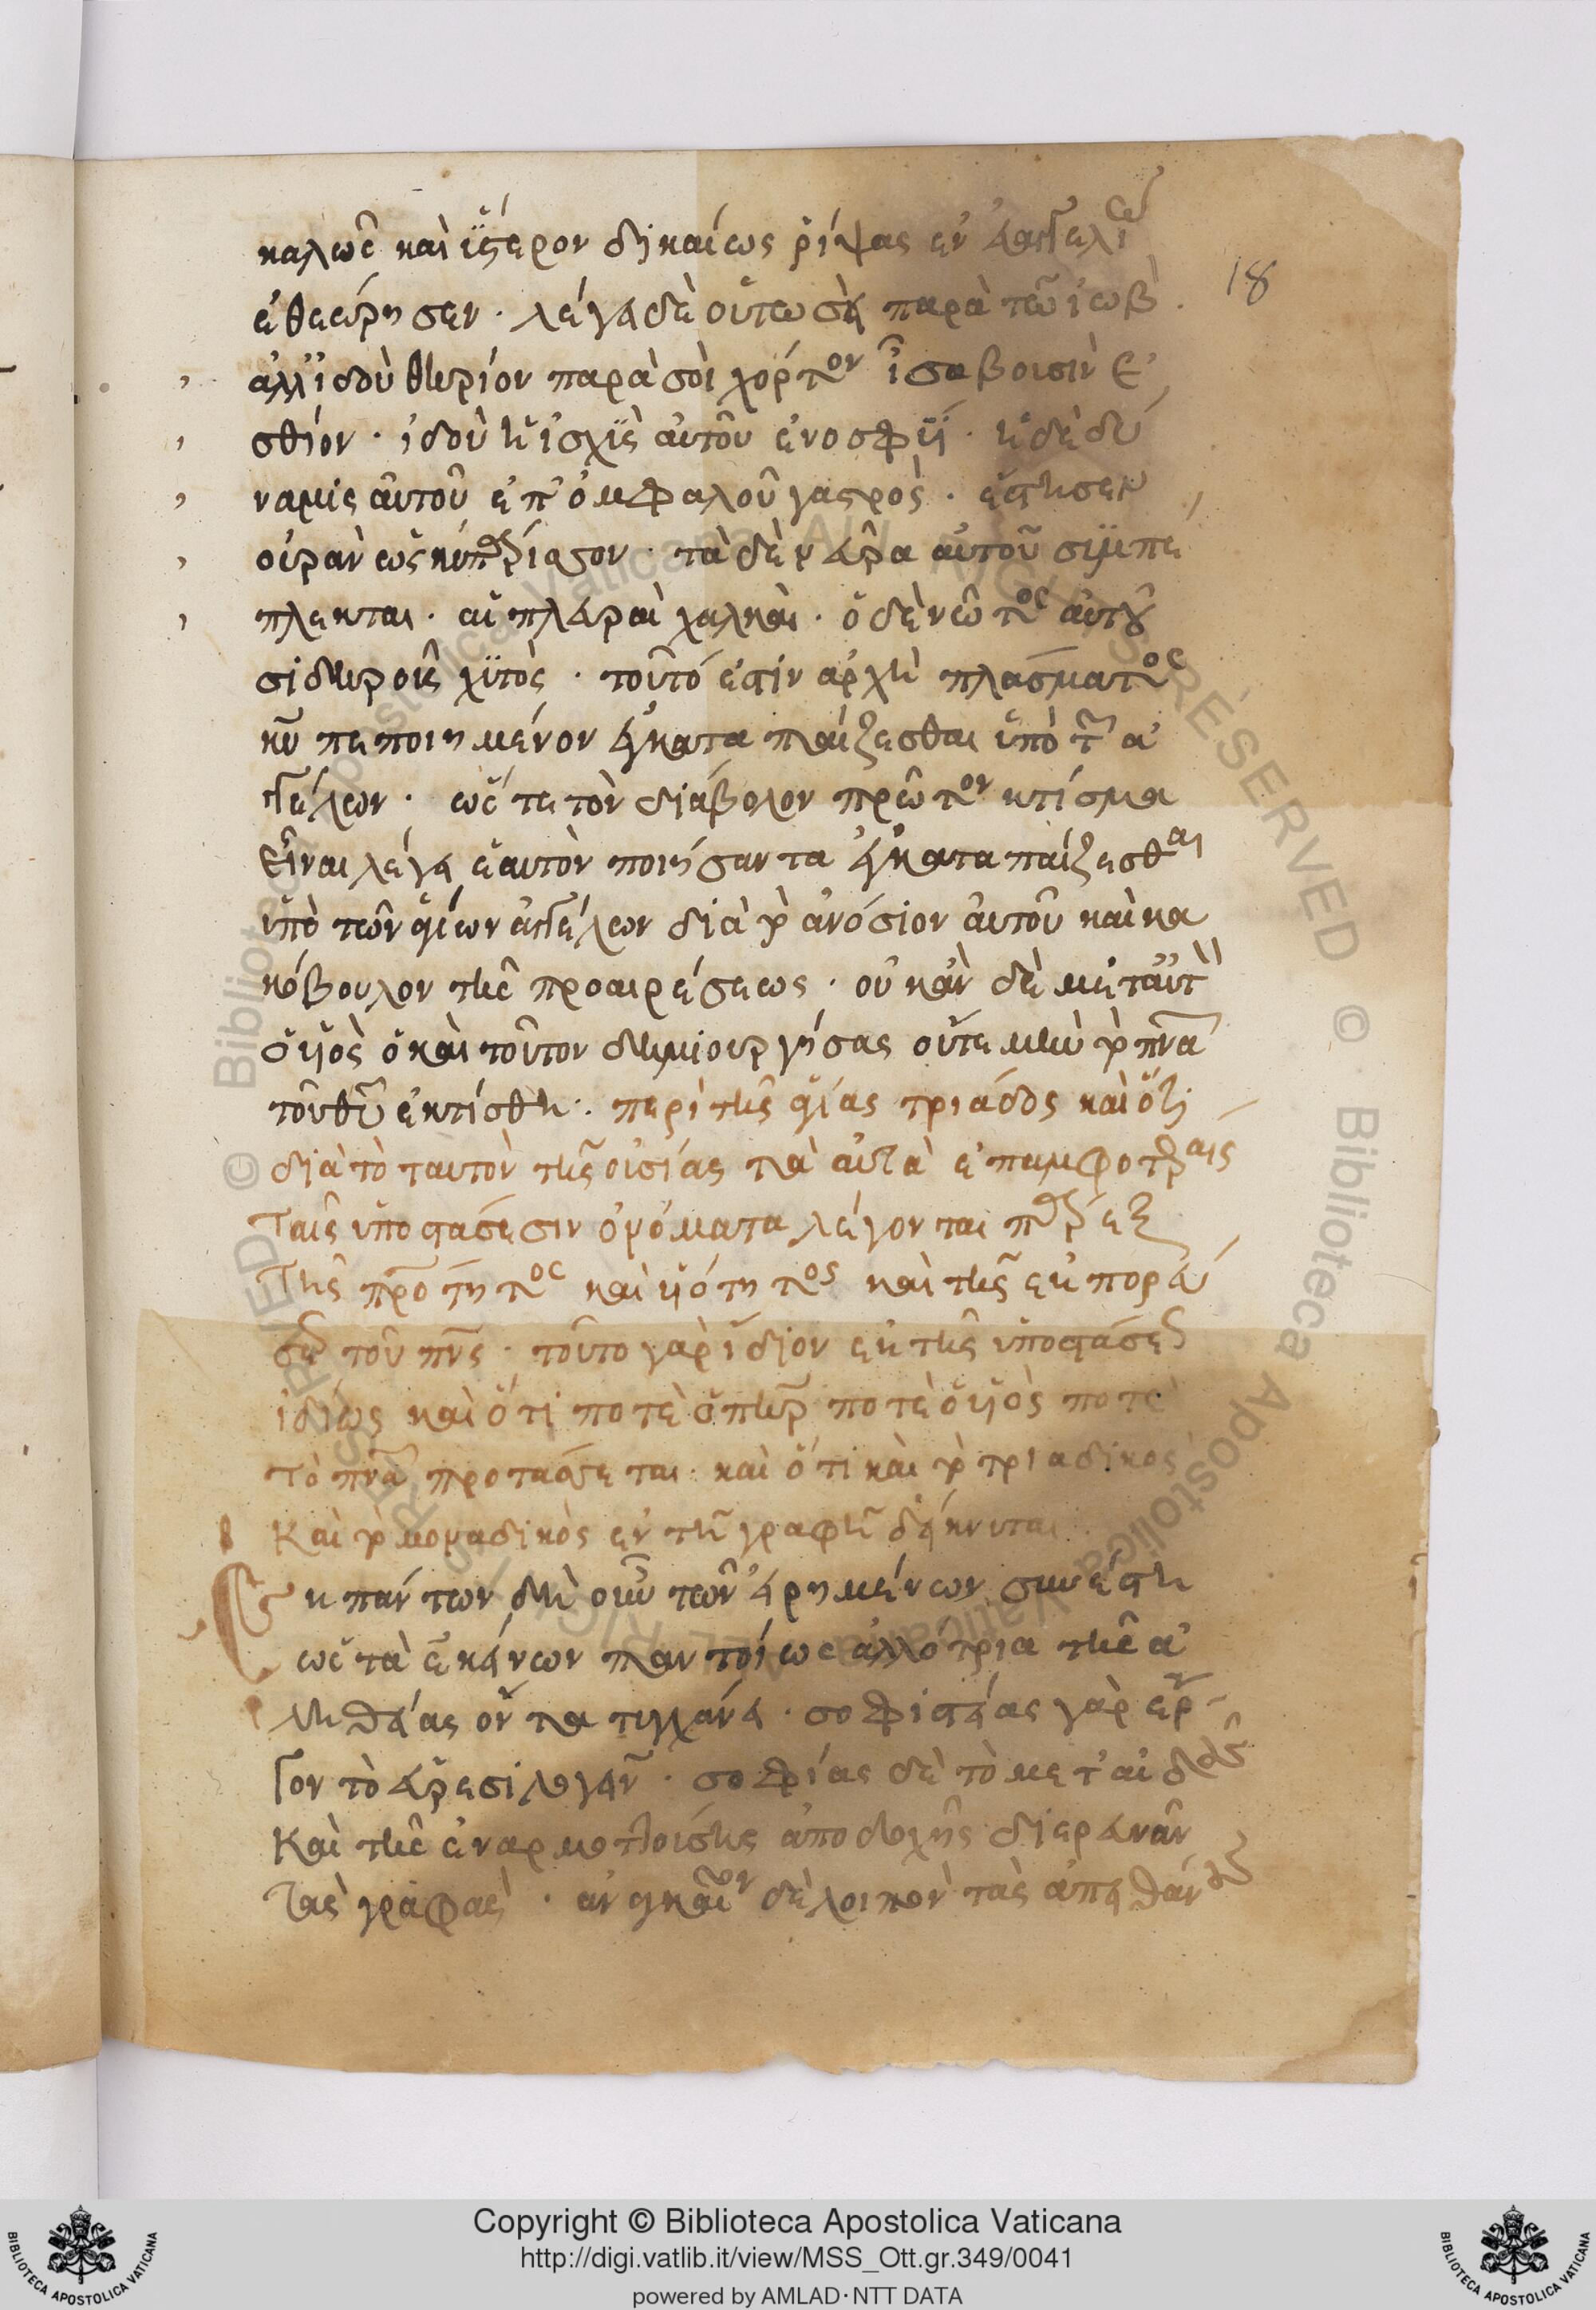 καλῶς καὶ ὕστερον δικαίως ῥίψας ἐν εὐαγγελίω
18
ἐθεώρησεν · λέγει δὲ οὕτως παρὰ τῶ ἰὼβ ·
ἀλλ' ἰδοὺ θηρίον παρὰ σοὶ χόρτον ἴσα βουσὶν ἐ
σθίον · ἰδοὺ ἡ ἰσχὺς αὐτοῦ ἐν ὀσφύϊ · ἡ δὲ δύ
ναμις αὐτοῦ ἐπ' ὀμφαλοῦ γαστρός · ἔστησεν
οὐρὰν ὡς κυπάρισσον · τὰ δὲ νεῦρα αὐτοῦ συμπέ
πλεκται · αἱ πλευραὶ χαλκαῖ · ὁ δὲ νῶτος αὐτοῦ
σίδηρος χυτός · τοῦτό ἐστιν ἀρχὴ πλάσματος
κυ πεποιημένον ἐγκαταπαίζεσθαι ὑπὸ τῶν ἀ
γγέλων · ὥστε τὸν διάβολον πρῶτον κτίσμα
εἶναι λέγει ἑαυτὸν ποιήσαντα ἐγκαταπαίζεσθαι
ὑπὸ τῶν ἁγίων ἀγγέλων διὰ τὸ ἀνόσιον αὐτοῦ καὶ κα
κόβουλον τῆς προαιρέσεως · οὐκ ἂν δὲ μετ' αὐτὸν
ὁ υἱὸς ὁ καὶ τοῦτον δημιουργήσας οὔτε μὴν τὸ πνα
τοῦ θυ ἐκτίσθη · περὶ τῆς ἁγίας τριάδος καὶ ὅτι
διὰ τὸ ταυτὸν τῆς οὐσίας τὰ αὐτὰ ἐπ' ἀμφοτέραις
ταῖς ὑποστάσεσιν ὀνόματα λέγονται πάρεξ
τῆς πρότητος καὶ υἱότητος καὶ τῆς ἐκπορεύ
σεως τοῦ πνς · τοῦτο γὰρ ἴδιον ἐκ τῆς ὑποστάσεως
ἰδίως καὶ ὅτι ποτὲ ὁ πηρ ποτὲ ὁ υἱὸς ποτὲ
τὸ πνα προτάσσεται · καὶ ὅτι καὶ τὸ τριαδικὸς
καὶ τὸ μοναδικὸς ἐν τῇ γραφῇ δείκνυται
Ἐκ πάντων δὴ οὖν τῶν εἰρημένων συνέστη
ὡς τὰ ἐκείνων παντοίως ἀλλότρια τῆς ἀ
ληθείας ὄντα τυγχάνει · σοφιστείας γὰρ ἔρ
γον τὸ εὑρεσιλογεῖν · σοφίας δὲ τὸ μετ' αἰδοῦς
καὶ τῆς ἐναρμοττούσης ἀποδοχῆς διερευνᾶν
τὰς γραφὰς · ἀναγκαῖον δὲ λοιπὸν τὰς
Copyright © Biblioteca Apostolica Vaticana
http://digi.vatlib.it/view/MSS_Ott.gr.349/0041
powered by AMLAD·NTT DATA